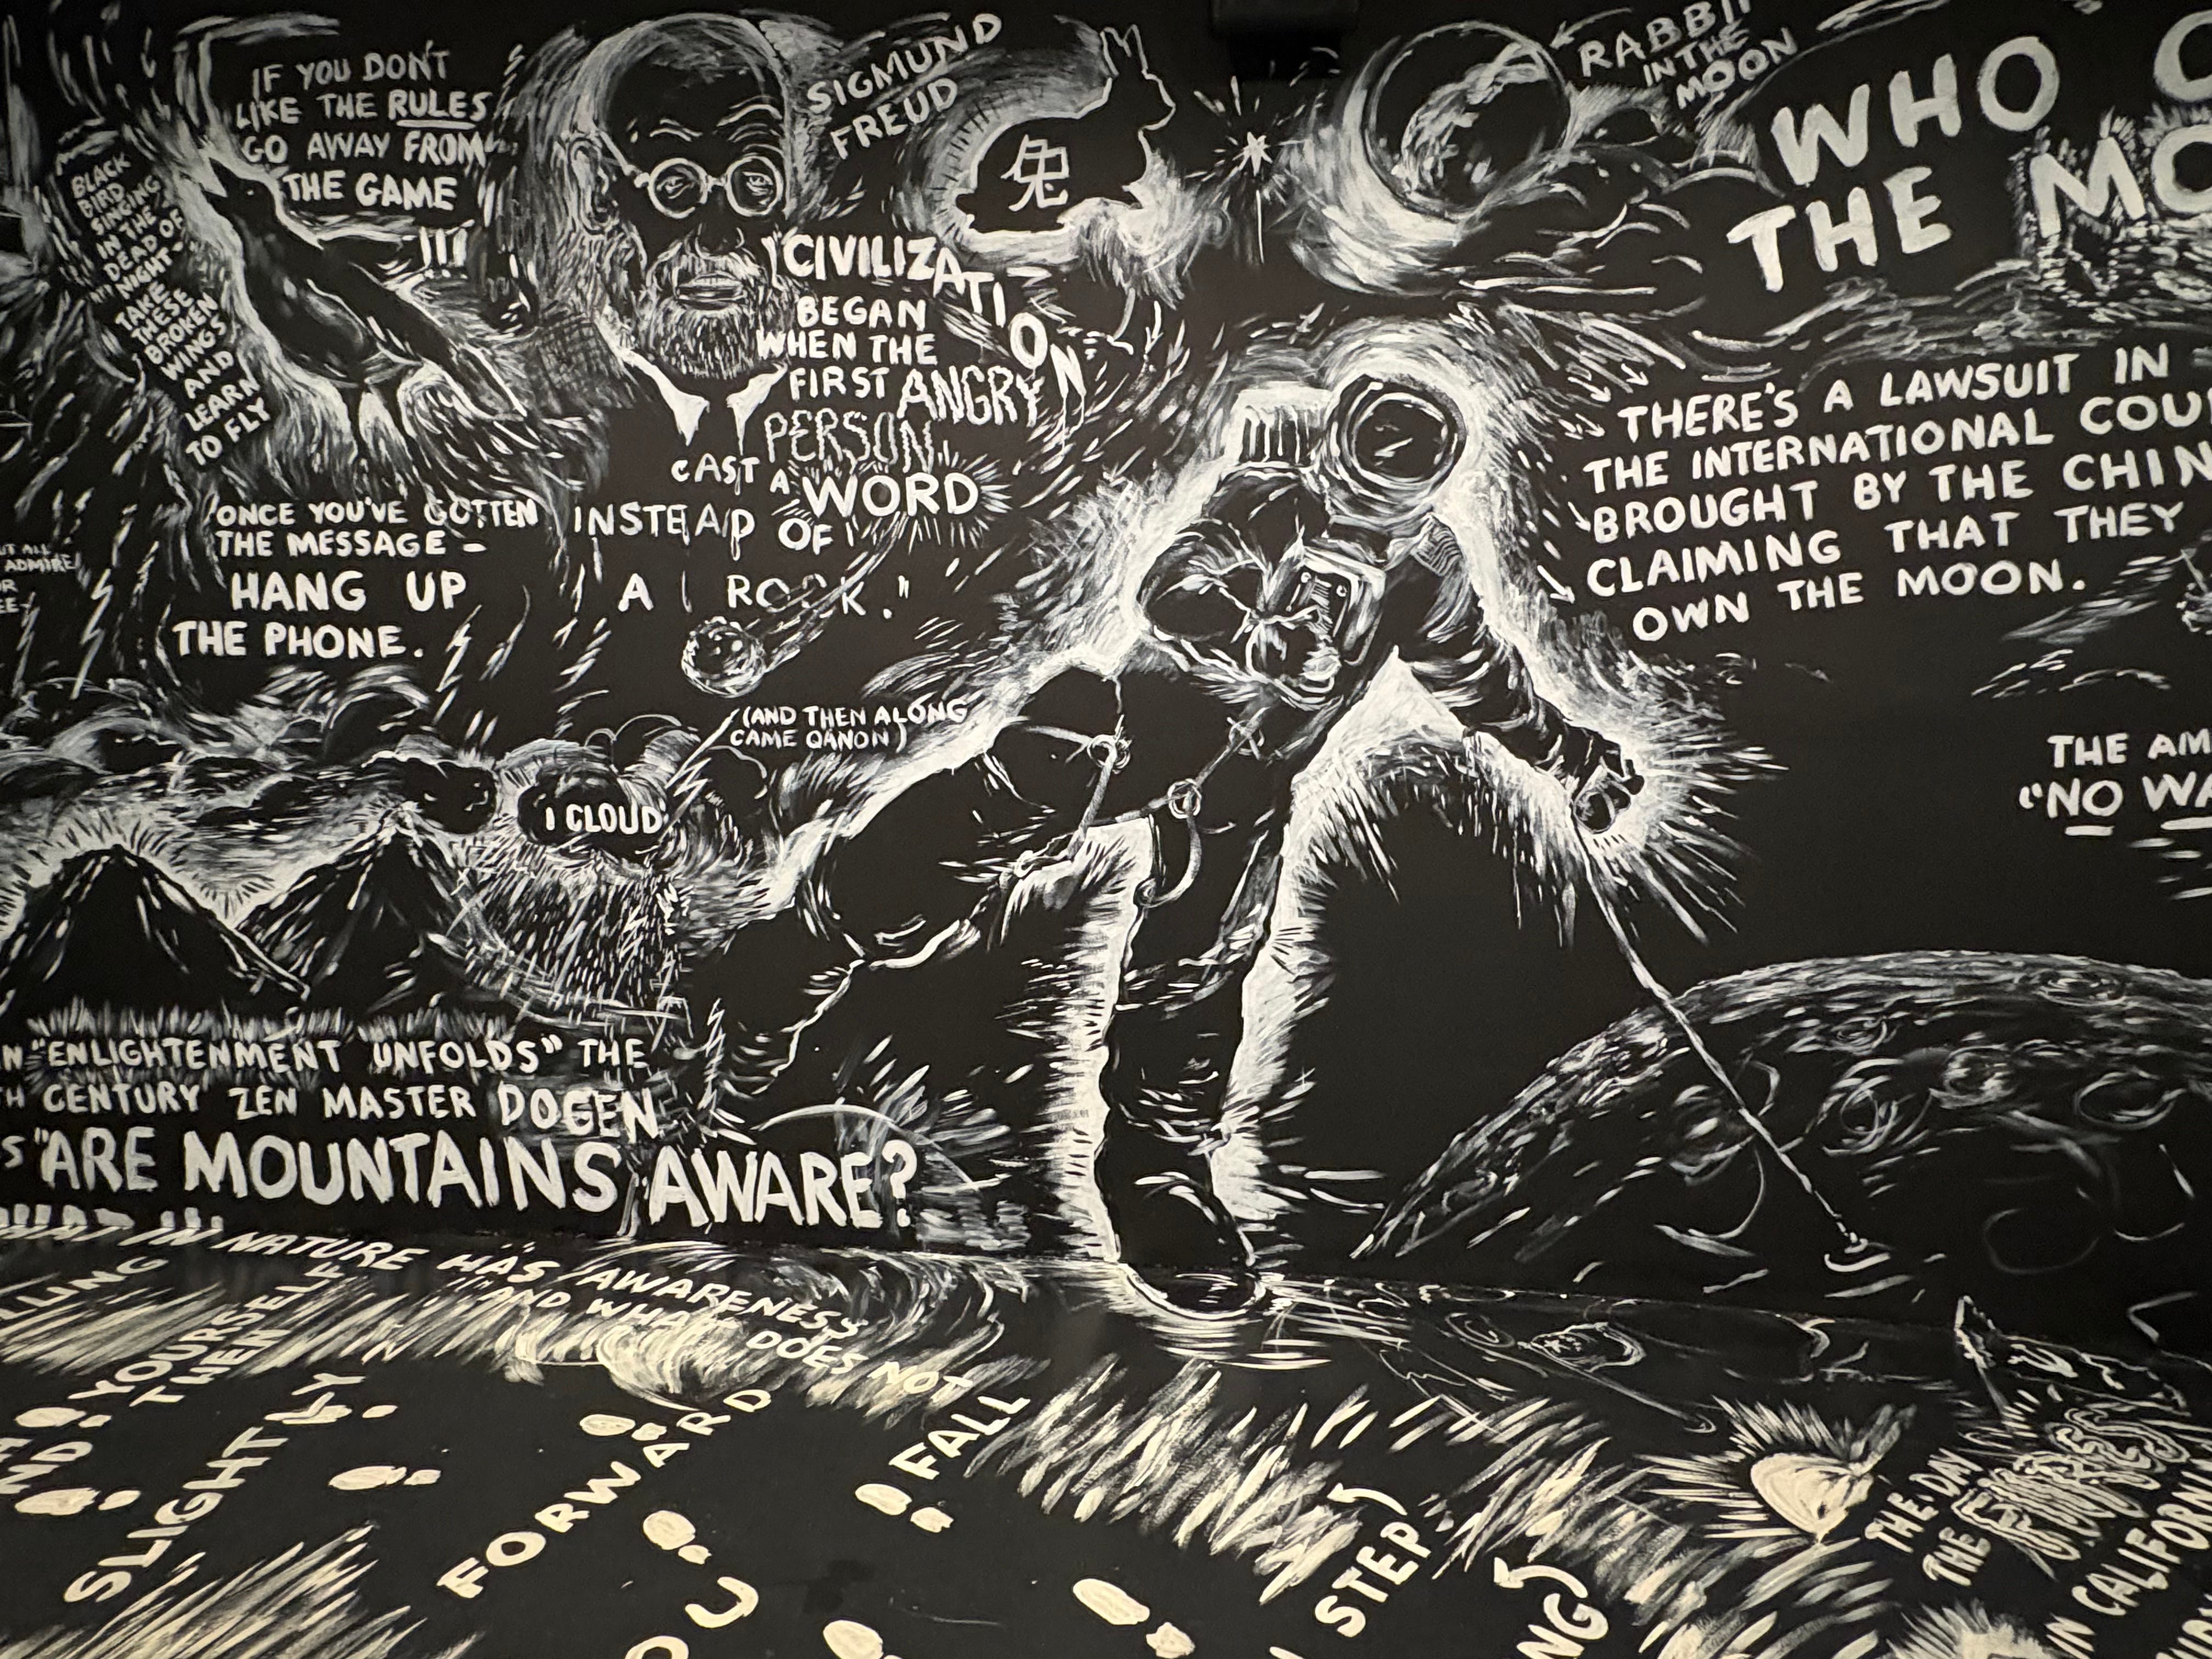 IF YOU DON'T
LIKE THE RULES
GO AWAY FROM
THE GAME
BLACK
BIRD
SINGING
IN THE
DEAD OF
NIGHT
TAKE
THESE
BROKEN
WINGS
AND
LEARN
TO FLY
SIGMUND
FREUD
兔
RABBIT
IN THE
MOON
WHO
THE MO
"CIVILIZATION
BEGAN
WHEN THE
FIRST ANGRY
PERSON
CAST A WORD
INSTEAD OF
A ROCK."
ONCE YOU'VE GOTTEN
THE MESSAGE -
HANG UP
THE PHONE.
ADMIRE
(AND THEN ALONG
CAME QANON)
I CLOUD
THERE'S A LAWSUIT IN
THE INTERNATIONAL COU
BROUGHT BY THE CHIN
CLAIMING THAT THEY
OWN THE MOON.
THE AM
"NO WA
N "ENLIGHTENMENT UNFOLDS" THE
TH CENTURY ZEN MASTER DOGEN
S "ARE MOUNTAINS AWARE?
WHAT IN NATURE HAS AWARENESS
AND WHAT DOES NOT
LLING
YOURSELF
THEN
AND
SLIGHTLY
FORWARD
FALL
OU
STEP
NG
THE DAY
THE
IN CALIFORN